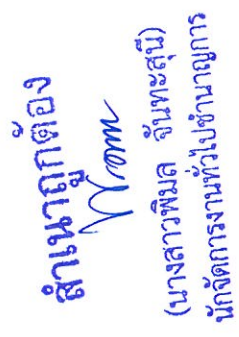 สำเนาถูกต้อง
(นางสาวพิมล จันทะสุนี)
นักจัดการงานทั่วไปชำนาญการ